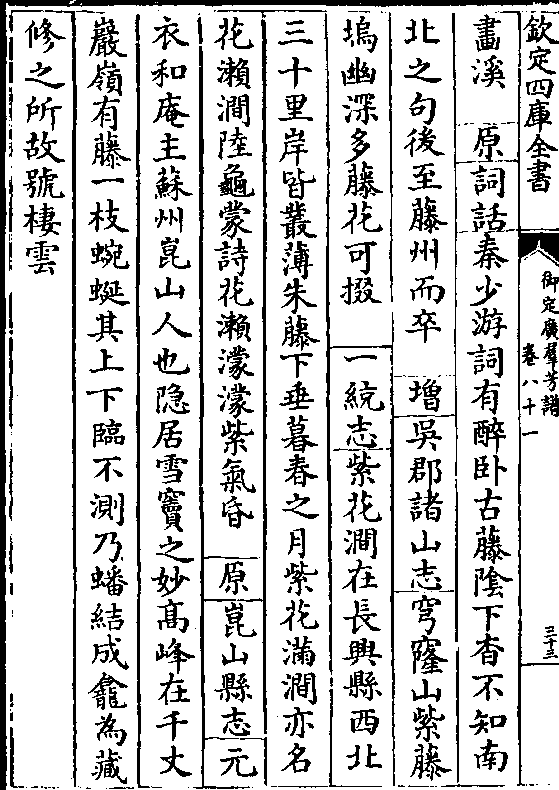 欽定四庫全書
御定廣羣芳譜
卷八十一
三十三
畫溪 原詞話秦少游詞有醉卧古藤陰下杳不知南
北之句後至藤州而卒 增吳郡諸山志穹窿山紫藤
塢幽深多藤花可掇 一統志紫花澗在長興縣西北
三十里岸皆叢薄朱藤下垂暮春之月紫花滿澗亦名
花瀨澗陸龜蒙詩花瀨濛濛紫氣昏 原崑山縣志元
衣和庵主蘇州崑山人也隐居雪竇之妙髙峰在千丈
巖嶺有藤一枝蜿蜒其上下臨不測乃蟠結成龕為藏
修之所故號棲雲